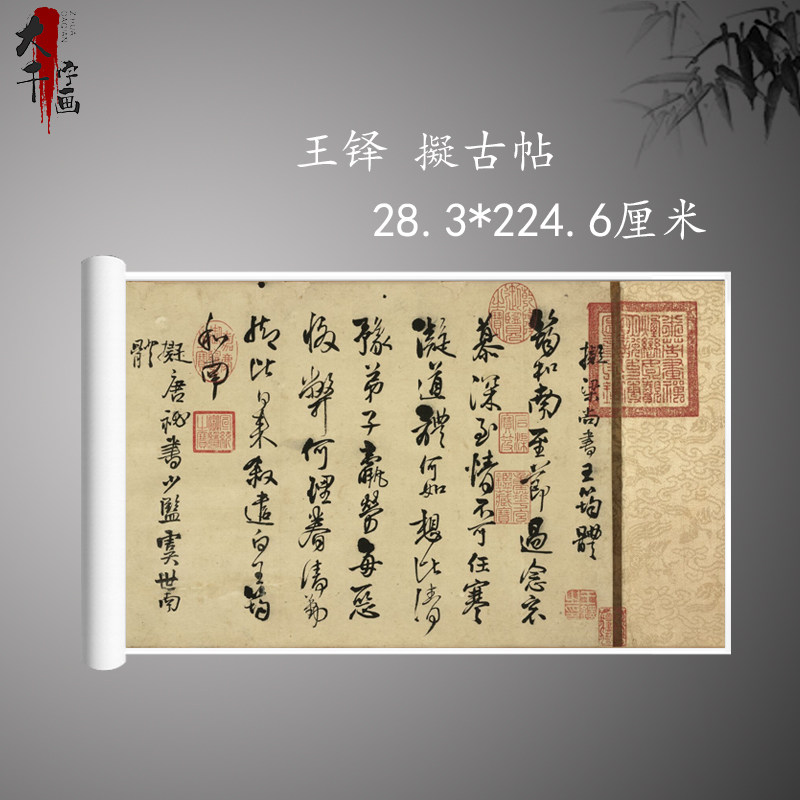 大千字画
ZIHUA
DAQIAN
王铎 擬古帖
28.3*224.6厘米
擬梁尚書王筠體
筠和南至節過念哀
慕深至情不可任寒
凝道體何如想比清
豫弟子羸勞每惡
弊何理眷清勤
比來敘遣白王筠
和南
擬唐秘書少監虞世南
體